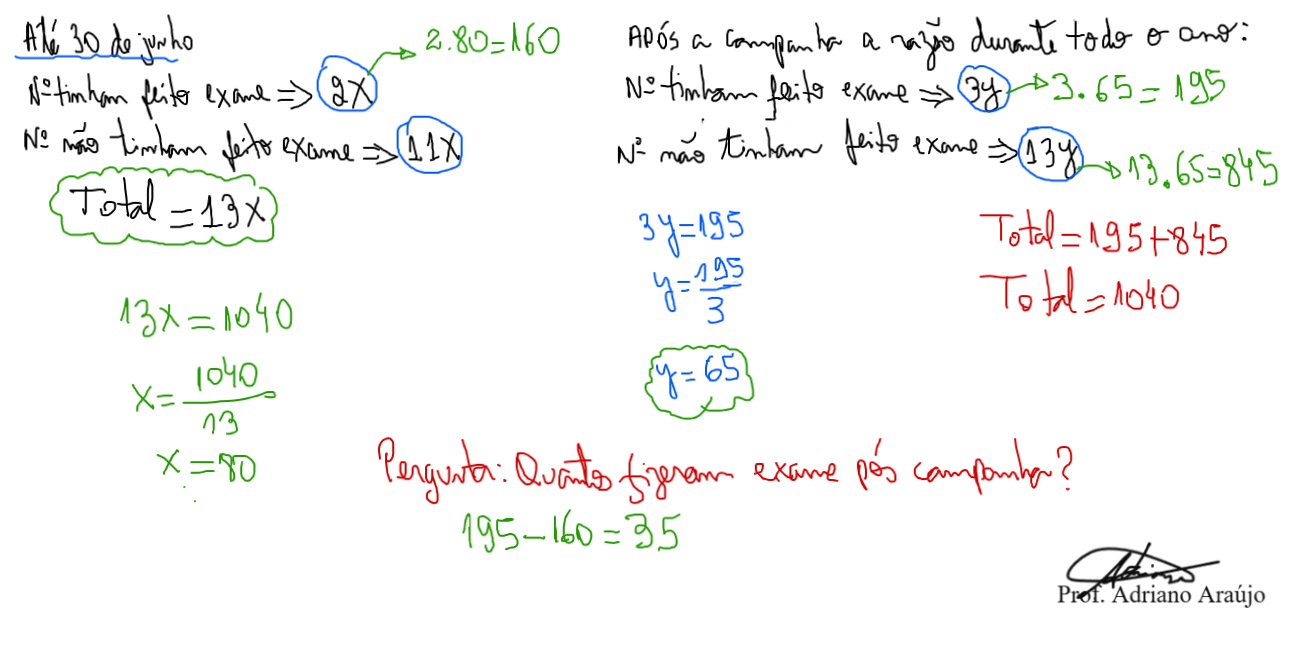 Até 30 de junho
Nº tinham feito exame ⇒ 2x → 2.80=160
Nº não tinham feito exame ⇒ 11x
Total = 13x
13x = 1040
x = 1040/13
x = 80
Após a campanha a razão durante todo o ano:
Nº tinham feito exame ⇒ 3y → 3.65 = 195
Nº não tinham feito exame ⇒ 13y → 13.65=845
3y = 195
y = 195/3
y = 65
Total = 195+845
Total = 1040
Pergunta: Quantos fizeram exame pós campanha?
195 - 160 = 35
Prof. Adriano Araújo